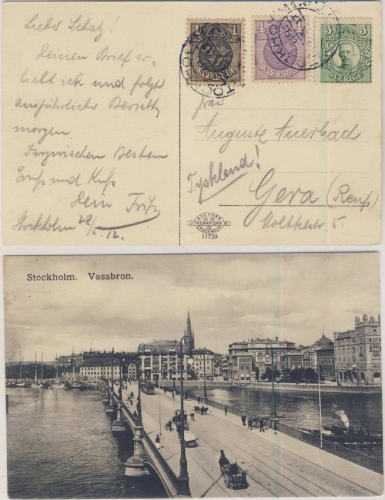 Lieber Schatz!
Deinen Brief er-
hielt ich und folgt
ausführlicher Bericht
morgen.
Inzwischen Besten
Gruß und Kuß
Dein Fritz
Stockholm 28/5. 12.
1
SVERIGE
4
SVERIGE
5
SVERIGE
Frau
Auguste Auerbach
Tyskland!
Gera (Reuß)
Moltkestr. 5.
11739
Stockholm. Vasabron.